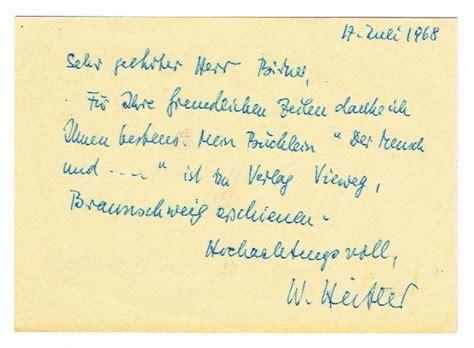 17. Juli 1968
Sehr geehrter Herr
Für Ihre freundlichen Zeilen danke ich
Ihnen bestens. Mein Büchlein "Der Mensch
und ...." ist im Verlag Vieweg,
Braunschweig erschienen.
Hochachtungsvoll,
W. Heitler